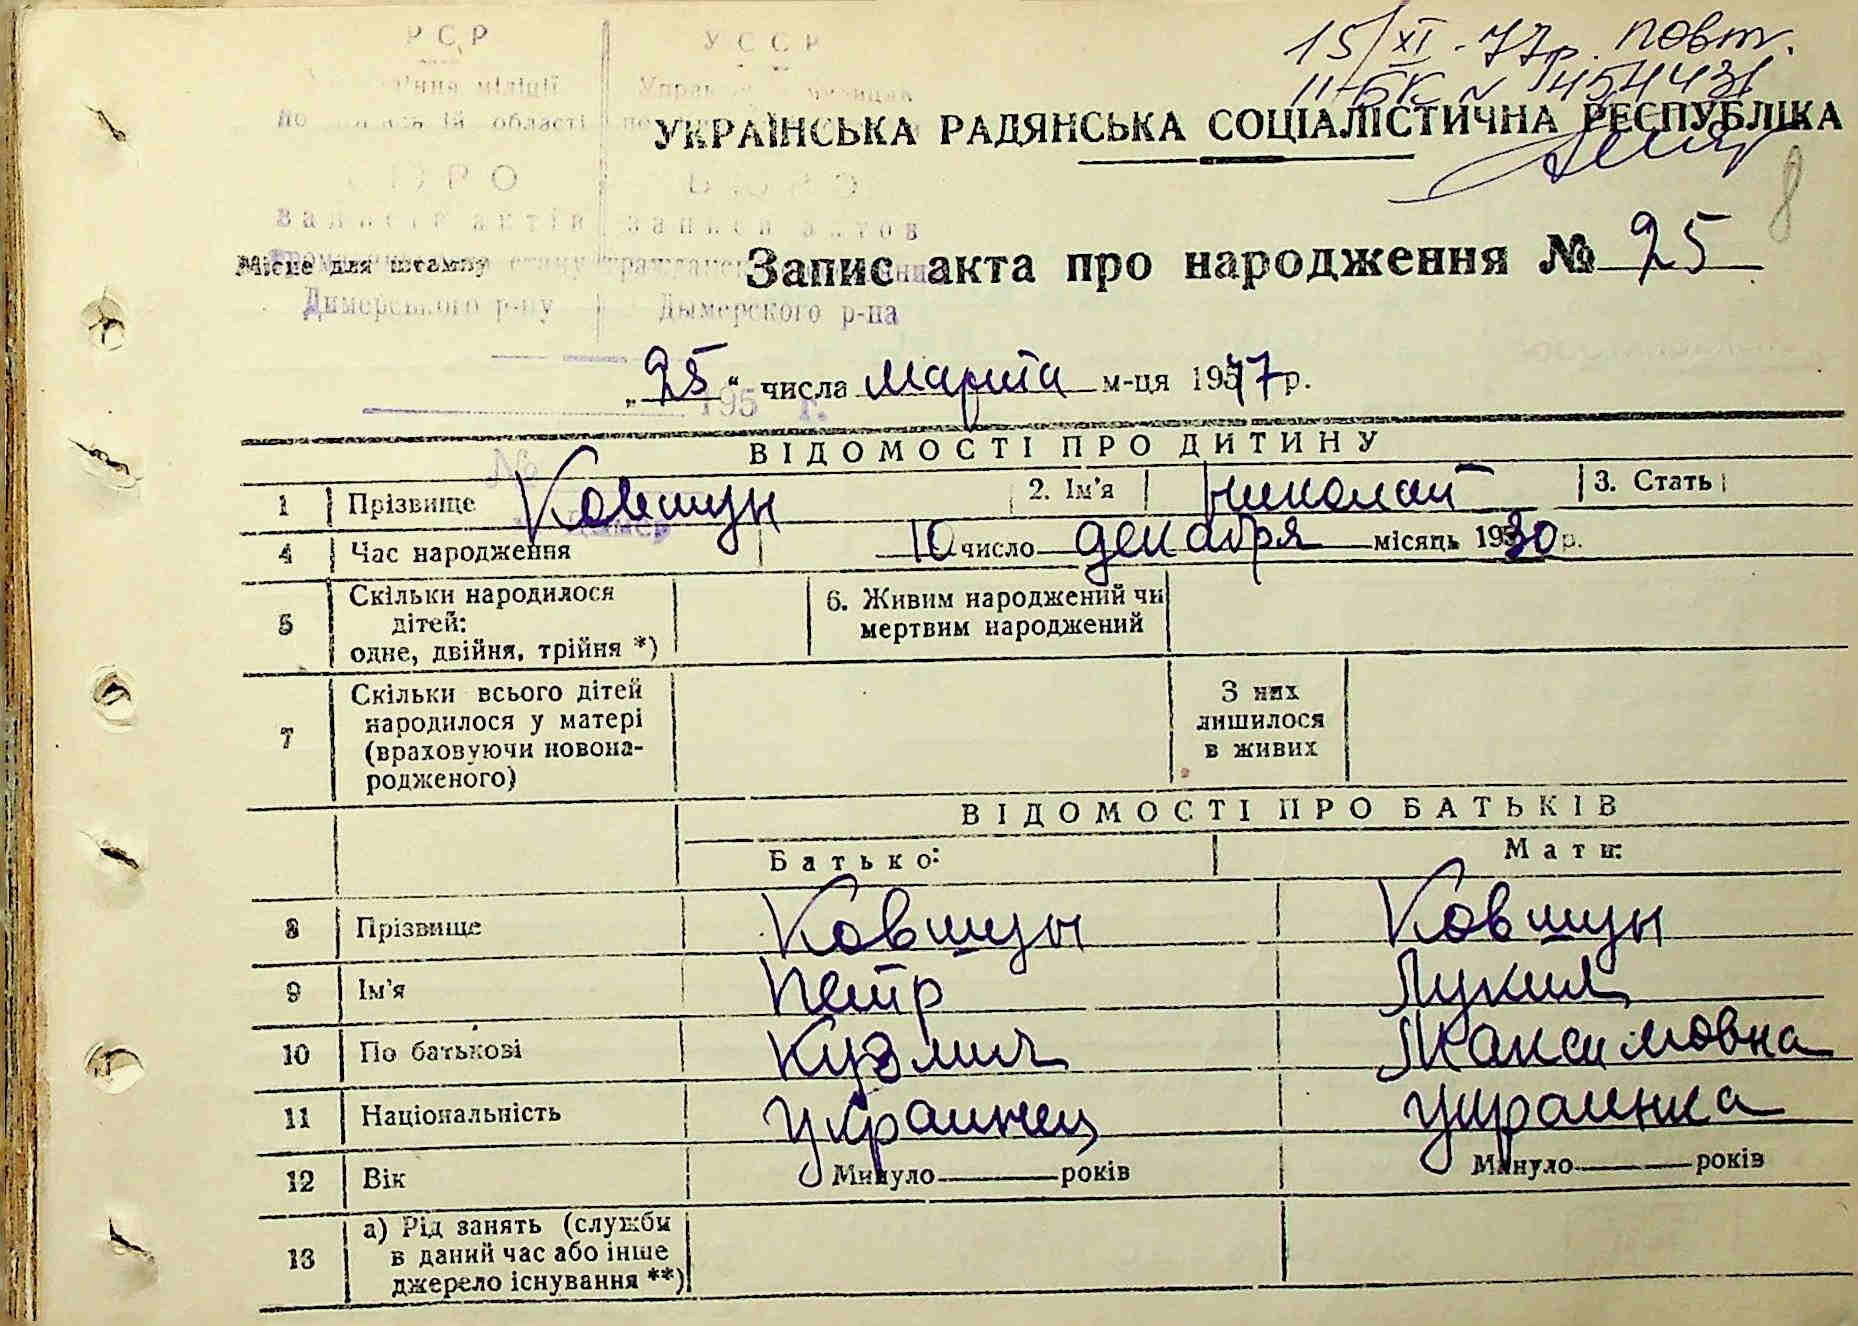 15/XI-77р. повт.
II-БК № 454431
РСР УССР
міліції Управ
області
УКРАЇНСЬКА РАДЯНСЬКА СОЦІАЛІСТИЧНА РЕСПУБЛІКА
8
БЮРО БЮРО
записів актів записи актов
Місце для штампу
Запис акта про народження № 25
Димерського р-ну Дымерского р-на
„25“ числа марта м-ця 1957 р.
195 г.
ВІДОМОСТІ ПРО ДИТИНУ
№
1 Прізвище Ковшун 2. Ім'я Николай 3. Стать
Димер
4 Час народження 10 число декабря місяць 1930 р.
5 Скільки народилося дітей: одне, двійня, трійня *) 6. Живим народжений чи мертвим народжений
7 Скільки всього дітей народилося у матері (враховуючи новонародженого) З них лишилося в живих
ВІДОМОСТІ ПРО БАТЬКІВ
Батько: Мати:
8 Прізвище Ковшун Ковшун
9 Ім'я Петр Лукия
10 По батькові Кузмич Максимовна
11 Національність украинец украинка
12 Вік Минуло років Минуло років
13 а) Рід занять (служби в даний час або інше джерело існування **)